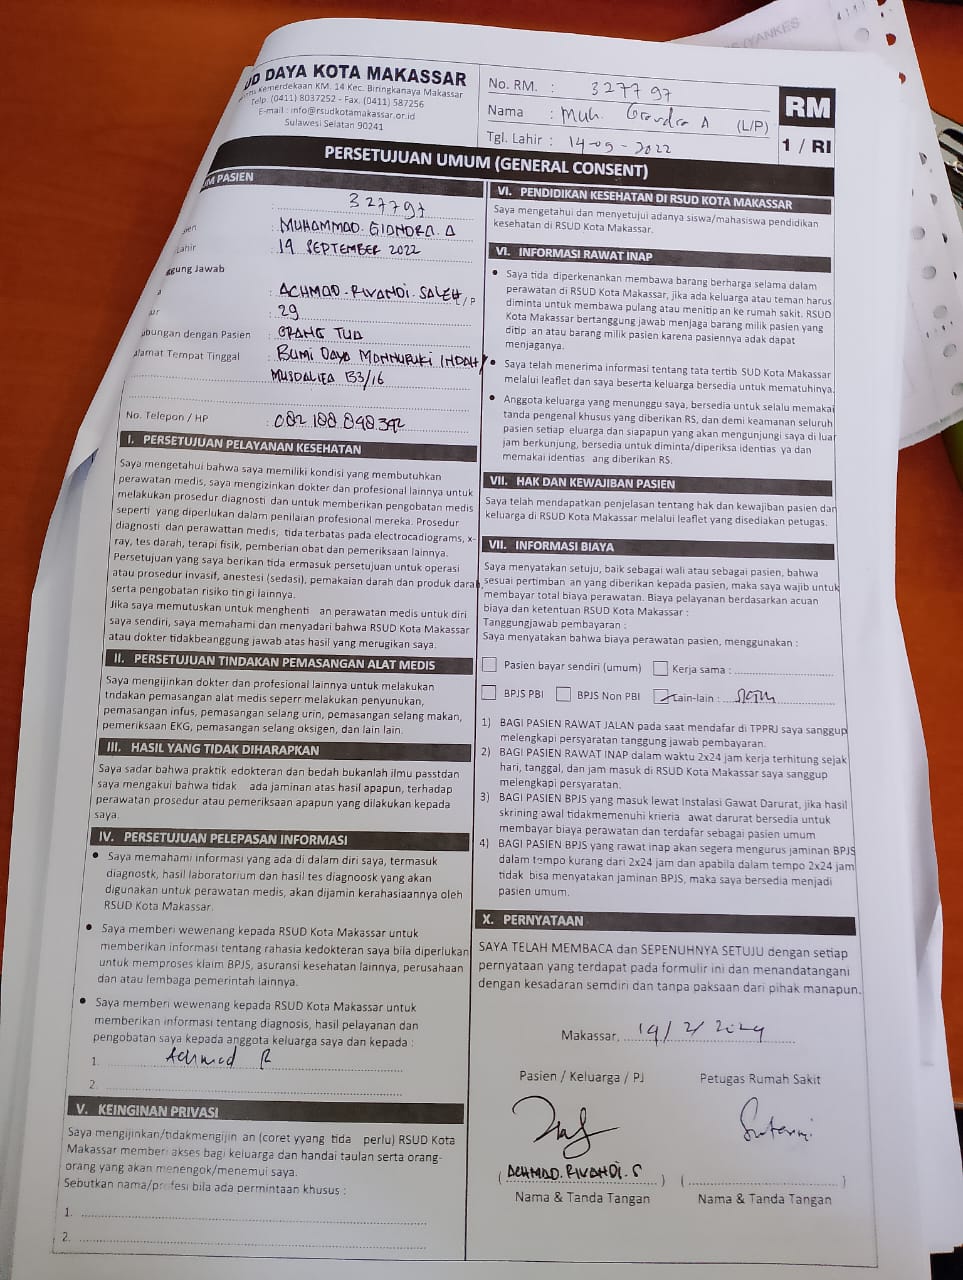 UD DAYA KOTA MAKASSAR
Kemerdekaan KM. 14 Kec. Biringkanaya Makassar
Telp. (0411) 8037252 - Fax. (0411) 587256
E-mail : info@rsudkotamakassar.or.id
Sulawesi Selatan 90241
No. RM. : 327797
Nama : Muh. A (L/P)
Tgl. Lahir : 14-09-2022
RM
1 / RI
PERSETUJUAN UMUM (GENERAL CONSENT)
PASIEN
: 327797
: MUHAMMAD. GIANDRA. A
Lahir : 19 SEPTEMBER 2022
ggung Jawab
: ACHMAD. RIVANDI. SALEH / P
: 29
ubungan dengan Pasien : ORANG TUA
alamat Tempat Tinggal : BUMI DAYA INDAH /
MUSDALIFA B3/16
No. Telepon / HP : 082 188 898 392
I. PERSETUJUAN PELAYANAN KESEHATAN
Saya mengetahui bahwa saya memiliki kondisi yang membutuhkan
perawatan medis, saya mengizinkan dokter dan profesional lainnya untuk
melakukan prosedur diagnosti dan untuk memberikan pengobatan medis
seperti yang diperlukan dalam penilaian profesional mereka. Prosedur
diagnosti dan perawattan medis, tida terbatas pada electrocadiograms, x-
ray, tes darah, terapi fisik, pemberian obat dan pemeriksaan lainnya.
Persetujuan yang saya berikan tida ermasuk persetujuan untuk operasi
atau prosedur invasif, anestesi (sedasi), pemakaian darah dan produk darah,
serta pengobatan risiko tin gi lainnya.
Jika saya memutuskan untuk menghenti an perawatan medis untuk diri
saya sendiri, saya memahami dan menyadari bahwa RSUD Kota Makassar
atau dokter tidakbeanggung jawab atas hasil yang merugikan saya.
II. PERSETUJUAN TINDAKAN PEMASANGAN ALAT MEDIS
Saya mengijinkan dokter dan profesional lainnya untuk melakukan
tndakan pemasangan alat medis seperr melakukan penyunukan,
pemasangan infus, pemasangan selang urin, pemasangan selang makan,
pemeriksaan EKG, pemasangan selang oksigen, dan lain lain.
III. HASIL YANG TIDAK DIHARAPKAN
Saya sadar bahwa praktik edokteran dan bedah bukanlah ilmu passtdan
saya mengakui bahwa tidak ada jaminan atas hasil apapun, terhadap
perawatan prosedur atau pemeriksaan apapun yang dilakukan kepada
saya.
IV. PERSETUJUAN PELEPASAN INFORMASI
• Saya memahami informasi yang ada di dalam diri saya, termasuk
diagnostk, hasil laboratorium dan hasil tes diagnoosk yang akan
digunakan untuk perawatan medis, akan dijamin kerahasiaannya oleh
RSUD Kota Makassar.
• Saya memberi wewenang kepada RSUD Kota Makassar untuk
memberikan informasi tentang rahasia kedokteran saya bila diperlukan
untuk memproses klaim BPJS, asuransi kesehatan lainnya, perusahaan
dan atau lembaga pemerintah lainnya.
• Saya memberi wewenang kepada RSUD Kota Makassar untuk
memberikan informasi tentang diagnosis, hasil pelayanan dan
pengobatan saya kepada anggota keluarga saya dan kepada :
1. Achmad R
2.
V. KEINGINAN PRIVASI
Saya mengijinkan/tidakmengijin an (coret yyang tida perlu) RSUD Kota
Makassar memberi akses bagi keluarga dan handai taulan serta orang-
orang yang akan menengok/menemui saya.
Sebutkan nama/profesi bila ada permintaan khusus :
1.
2.
VI. PENDIDIKAN KESEHATAN DI RSUD KOTA MAKASSAR
Saya mengetahui dan menyetujui adanya siswa/mahasiswa pendidikan
kesehatan di RSUD Kota Makassar.
VI. INFORMASI RAWAT INAP
• Saya tida diperkenankan membawa barang berharga selama dalam
perawatan di RSUD Kota Makassar, jika ada keluarga atau teman harus
diminta untuk membawa pulang atau menitip an ke rumah sakit. RSUD
Kota Makassar bertanggung jawab menjaga barang milik pasien yang
ditip an atau barang milik pasien karena pasiennya adak dapat
menjaganya.
• Saya telah menerima informasi tentang tata tertib SUD Kota Makassar
melalui leaflet dan saya beserta keluarga bersedia untuk mematuhinya.
• Anggota keluarga yang menunggu saya, bersedia untuk selalu memakai
tanda pengenal khusus yang diberikan RS, dan demi keamanan seluruh
pasien setiap eluarga dan siapapun yang akan mengunjungi saya di luar
jam berkunjung, bersedia untuk diminta/diperiksa identias ya dan
memakai identias ang diberikan RS.
VII. HAK DAN KEWAJIBAN PASIEN
Saya telah mendapatkan penjelasan tentang hak dan kewajiban pasien dan
keluarga di RSUD Kota Makassar melalui leaflet yang disediakan petugas.
VII. INFORMASI BIAYA
Saya menyatakan setuju, baik sebagai wali atau sebagai pasien, bahwa
sesuai pertimban an yang diberikan kepada pasien, maka saya wajib untuk
membayar total biaya perawatan. Biaya pelayanan berdasarkan acuan
biaya dan ketentuan RSUD Kota Makassar :
Tanggungjawab pembayaran :
Saya menyatakan bahwa biaya perawatan pasien, menggunakan :
Pasien bayar sendiri (umum) Kerja sama :
BPJS PBI BPJS Non PBI Lain-lain :
1) BAGI PASIEN RAWAT JALAN pada saat mendafar di TPPRJ saya sanggup
melengkapi persyaratan tanggung jawab pembayaran.
2) BAGI PASIEN RAWAT INAP dalam waktu 2x24 jam kerja terhitung sejak
hari, tanggal, dan jam masuk di RSUD Kota Makassar saya sanggup
melengkapi persyaratan.
3) BAGI PASIEN BPJS yang masuk lewat Instalasi Gawat Darurat, jika hasil
skrining awal tidakmemenuhi krieria awat darurat bersedia untuk
membayar biaya perawatan dan terdafar sebagai pasien umum
4) BAGI PASIEN BPJS yang rawat inap akan segera mengurus jaminan BPJS
dalam tempo kurang dari 2x24 jam dan apabila dalam tempo 2x24 jam
tidak bisa menyatakan jaminan BPJS, maka saya bersedia menjadi
pasien umum.
X. PERNYATAAN
SAYA TELAH MEMBACA dan SEPENUHNYA SETUJU dengan setiap
pernyataan yang terdapat pada formulir ini dan menandatangani
dengan kesadaran semdiri dan tanpa paksaan dari pihak manapun.
Makassar, 19/2/2024
Pasien / Keluarga / PJ Petugas Rumah Sakit
(ACHMAD. RIVANDI. S) ( )
Nama & Tanda Tangan Nama & Tanda Tangan